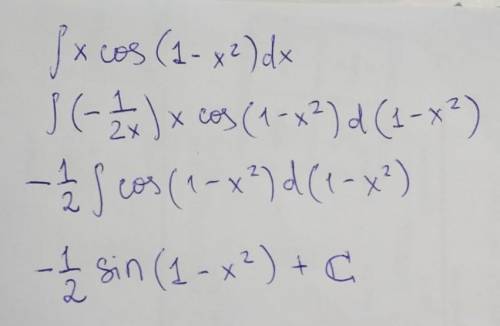 ∫ x cos (1 - x²) dx
∫ (- 1/2x) x cos (1 - x²) d (1 - x²)
- 1/2 ∫ cos (1 - x²) d (1 - x²)
- 1/2 sin (1 - x²) + ℂ